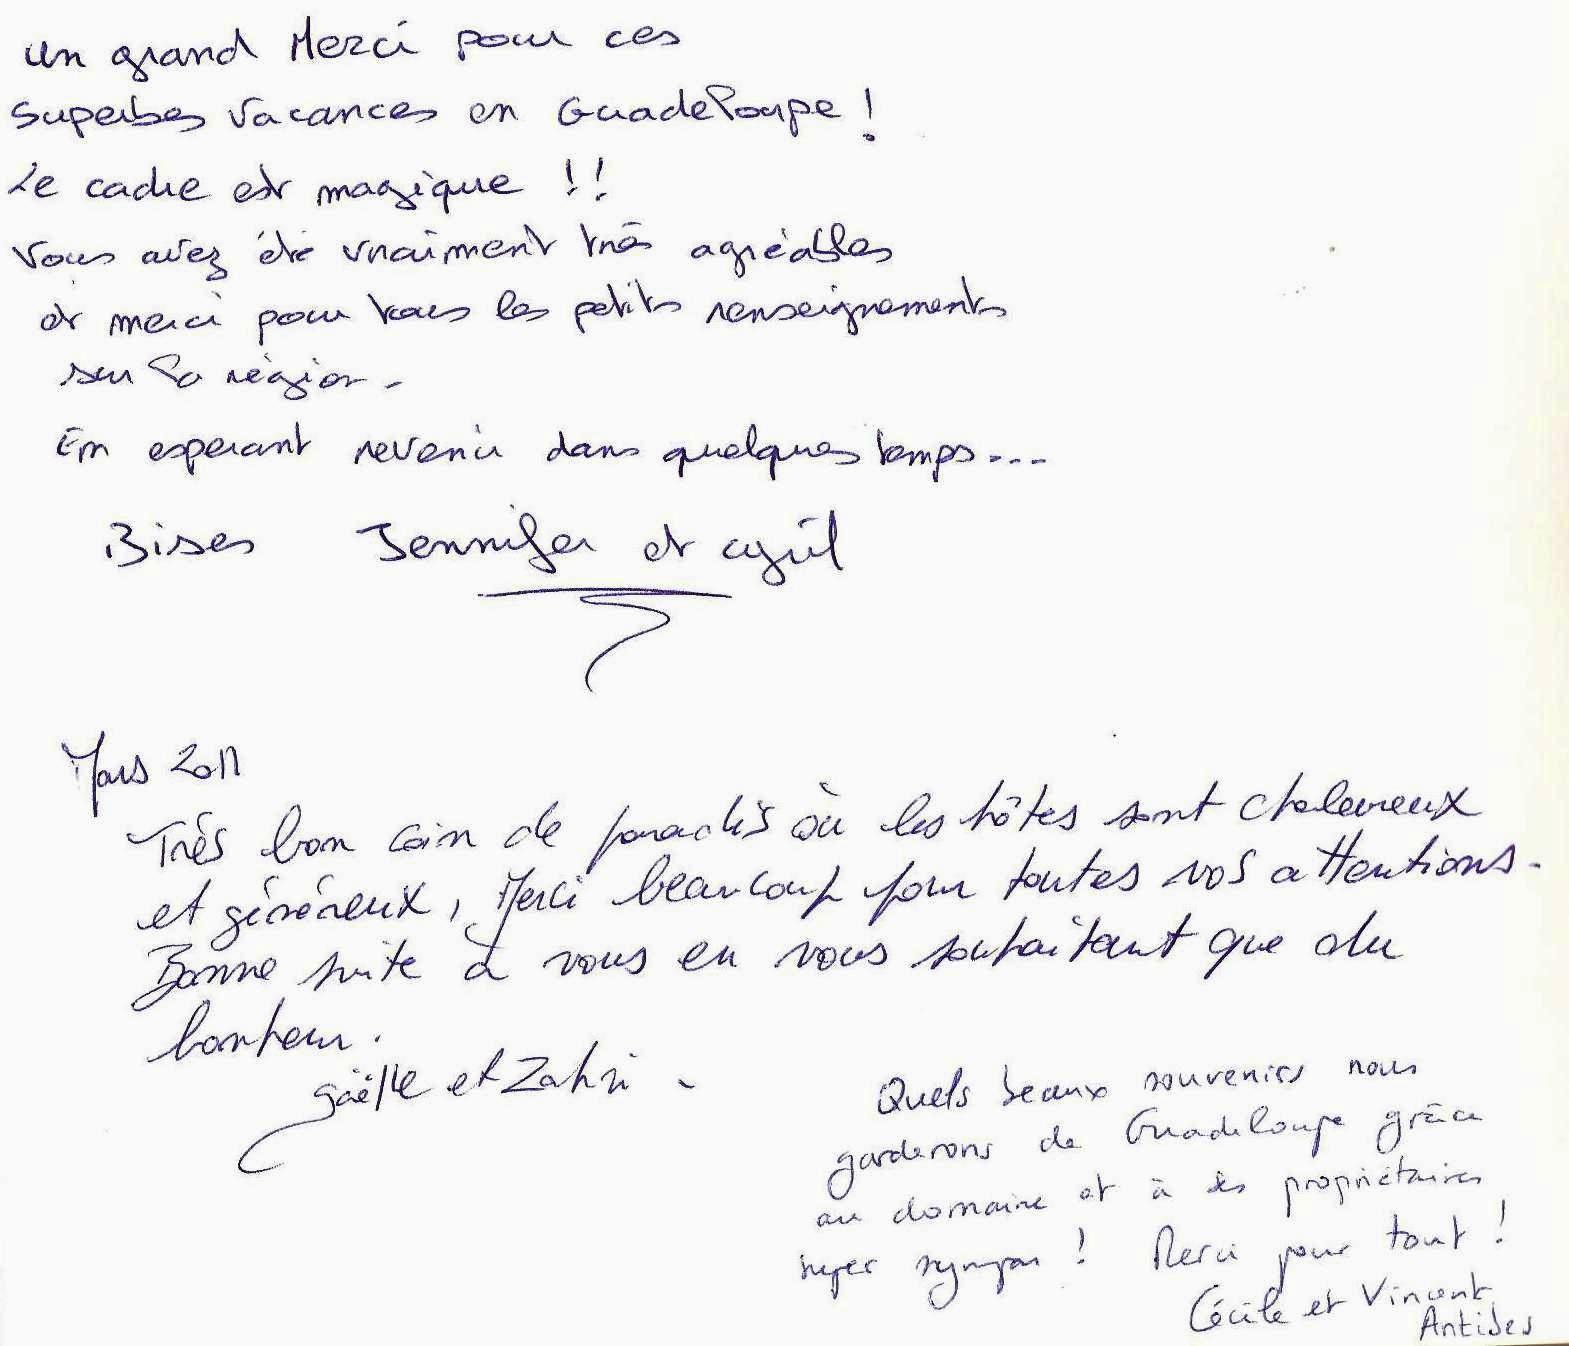 un grand Merci pour ces
superbes vacances en Guadeloupe !
Le cadre est magique !!
Vous avez été vraiment très agréables
et merci pour tous les petits renseignements
sur la région -
En esperant revenir dans quelques temps...
Bises Jennifer et cyril
Mars 2011
Très bon coin de paradis où les hôtes sont chaleureux
et généreux, Merci beaucoup pour toutes vos attentions -
Bonne suite à vous en vous souhaitant que du
bonheur.
gaëlle et Zahri -
Quels beaux souvenirs nous
garderons de Guadeloupe grâce
au domaine et à ses propriétaires
super sympas ! Merci pour tout !
Cécile et Vincent
Antibes